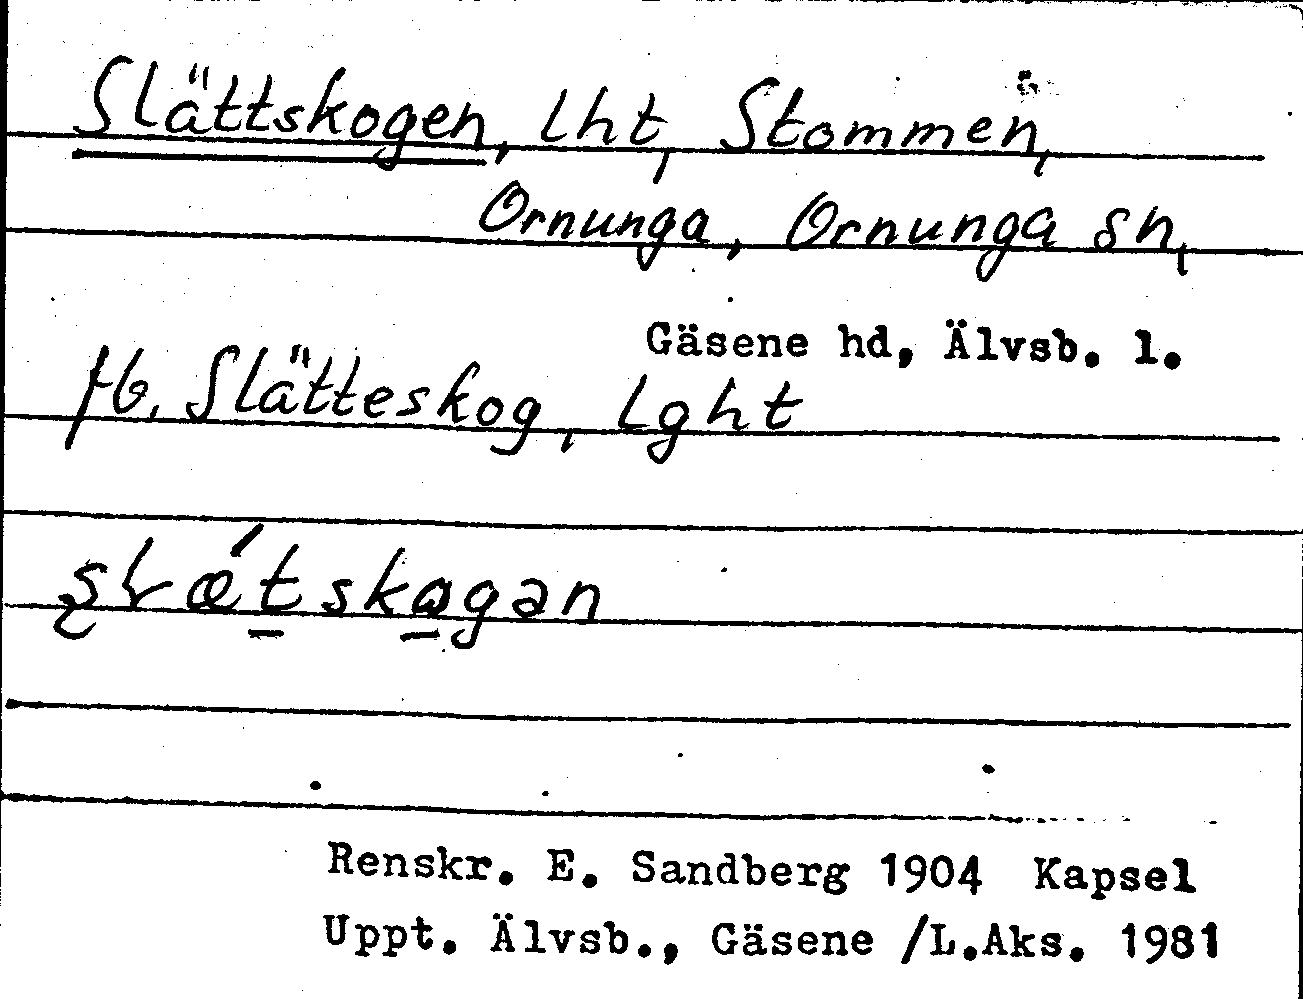 Slättskogen, lht, Stommen,
Ornunga, Ornunga sn,
Gäsene hd, Älvsb. l.
fb. Slätteskog, Lght
Renskr. E. Sandberg 1904 Kapsel
Uppt. Älvsb., Gäsene /L.Aks. 1981